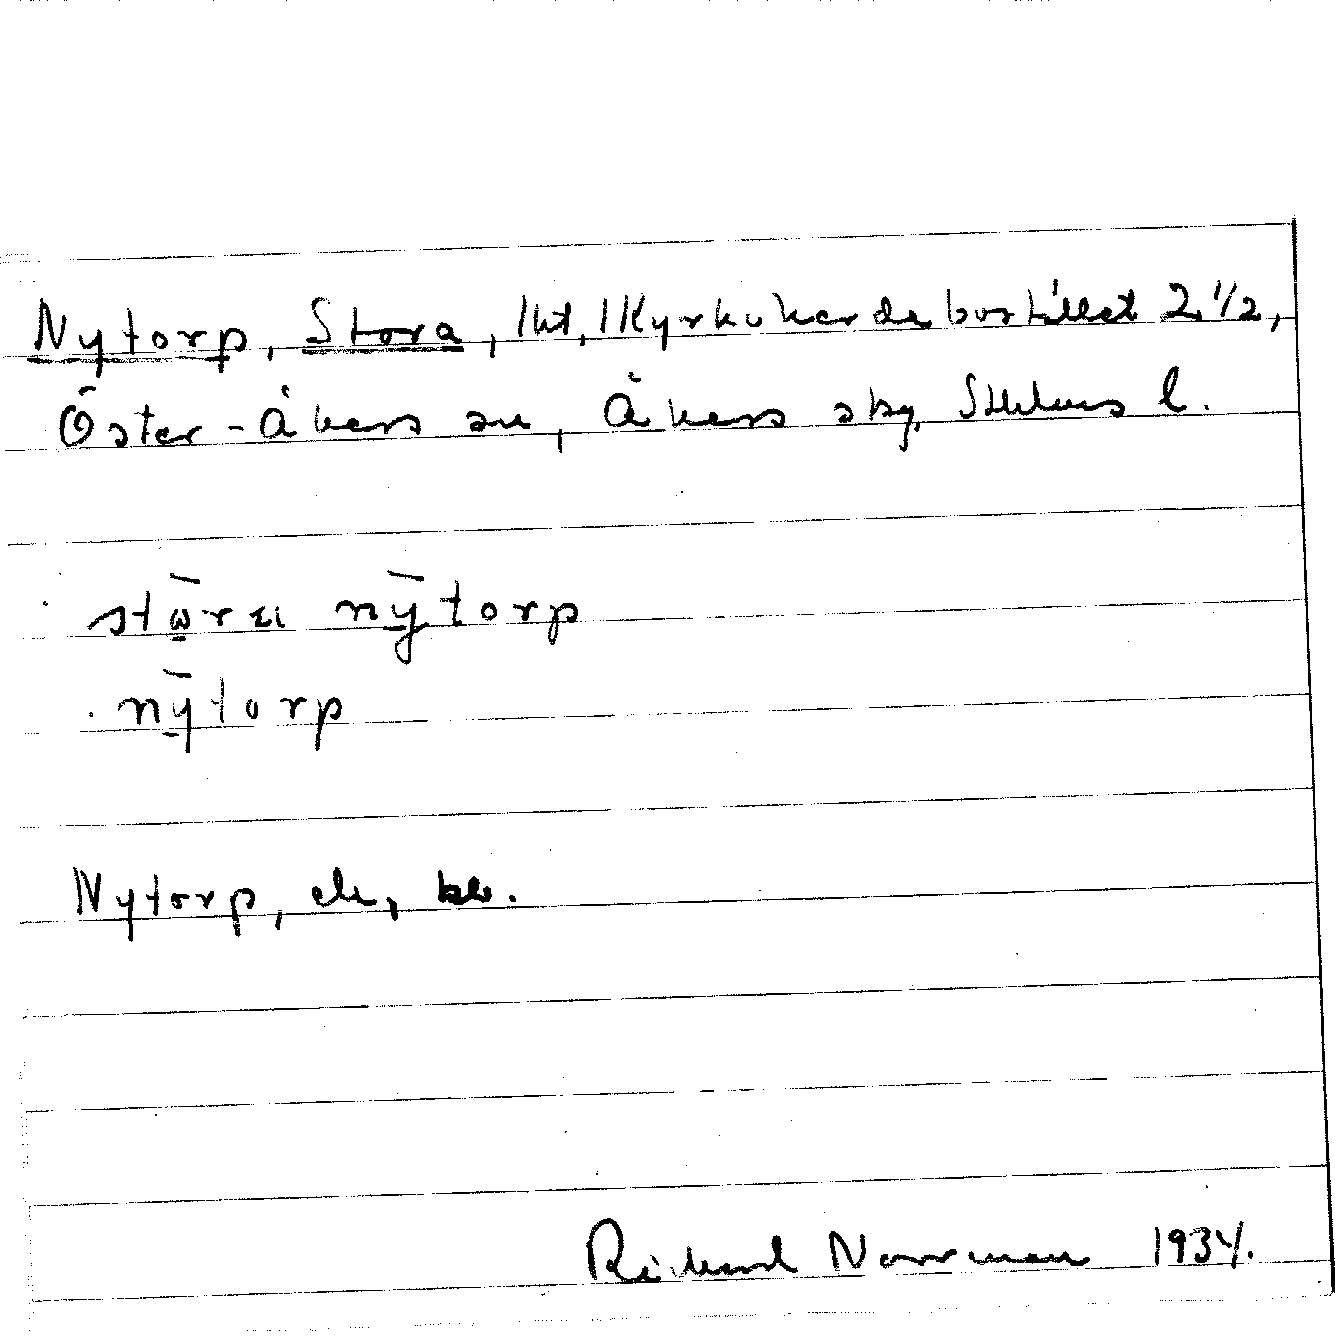 Nytorp, Stora, lht, 1 Kyrkoherdebostället 2 1/2,
Öster-Åkers sn, Åkers skg, Sthlms l.
nȳtorp
nȳtorp
Nytorp, ek,
Rickard Norrman 1934.